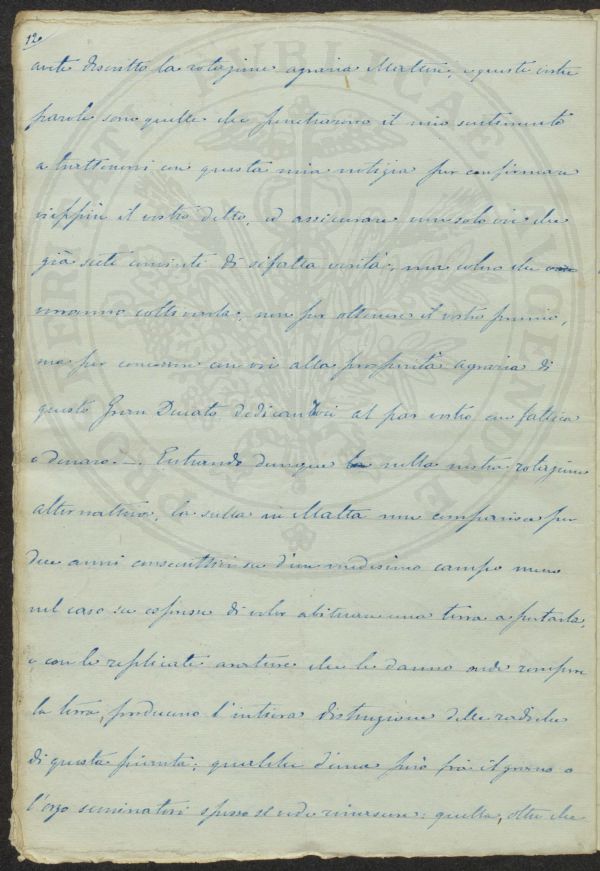 12.
avete discritto la rotazione agraria Maltese, e queste vostre
parole son quelle che penetrarono il mio sentimento
a trattenervi con questa mia notizia per confirmare
vieppiù il vostro detto, ed assicurare non solo voi che
già siete convinti di sifatta verità, ma coloro che
vorranno coltivarla, non per ottenere il vostro premio,
ma per concorrere con voi alla prosperità agraria di
questo Gran Ducato dedicandoci al par vostro con fatica
e denaro. Entrando dunque nella nostra rotazione
alternativa, la sulla in Malta non comparisce per
due anni consecutivi su d'un medesimo campo meno
nel caso su espresso di voler abituare una terra a portarla,
e con le replicate arature che le danno onde rompere
la terra, producono l'intiera distruzione delle radiche
di questa pianta; qualche d'una però fra il grano o
l'orzo seminatovi spesso si vede rinascere: quella, oltre che